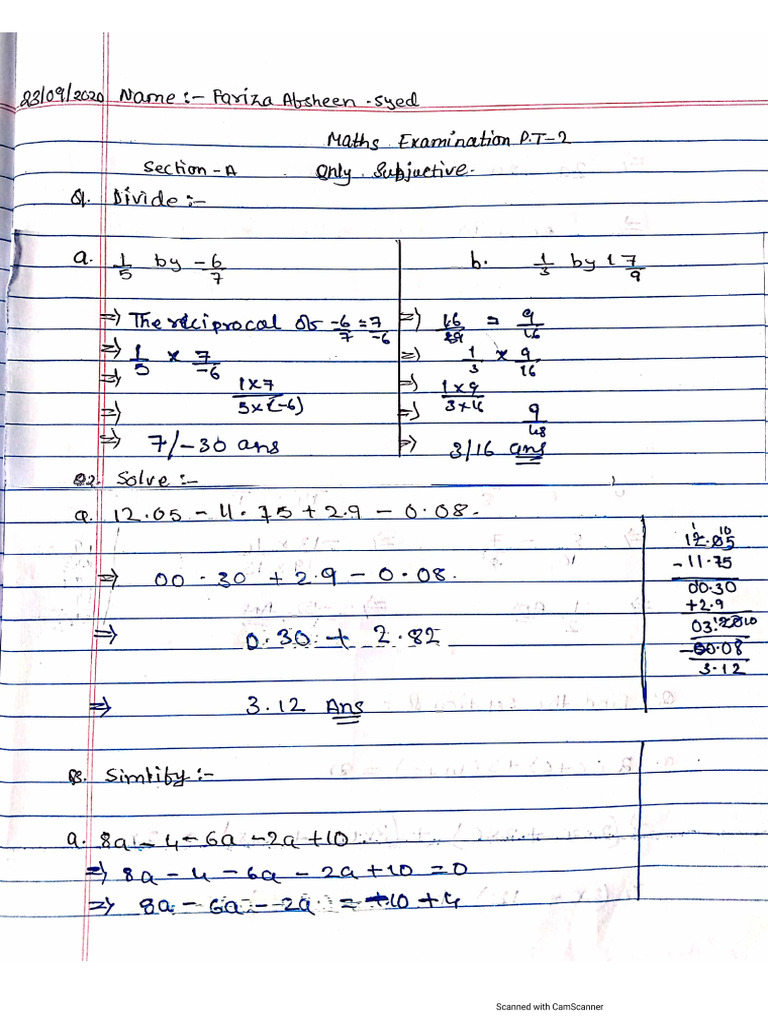 23/09/2020 Name :- Fariza Absheen - Syed
Maths Examination P.T-2
Section - A Only Subjective.
Q1. Divide :-
a. 1/5 by -6/7
⇒ The reciprocal of -6/7 = 7/-6
⇒ 1/5 × 7/-6
⇒ 1×7/5×(-6)
⇒
⇒ 7/-30 ans
b. 1/3 by 1 7/9
⇒ 16/9 = 9/16
⇒ 1/3 × 9/16
⇒ 1×9/3×16
⇒ 9/48
⇒ 3/16 ans
Q2. Solve :-
a. 12.05 - 11.75 + 2.9 - 0.08.
⇒ 00.30 + 2.9 - 0.08.
⇒ 0.30 + 2.82
⇒ 3.12 Ans
12.05
- 11.75
00.30
+2.9
03.20
-00.08
3.12
Q3. Simlify :-
a. 8a - 4 - 6a - 2a + 10.
⇒ 8a - 4 - 6a - 2a + 10 = 0
⇒ 8a - 6a - 2a = +10 + 4
Scanned with CamScanner